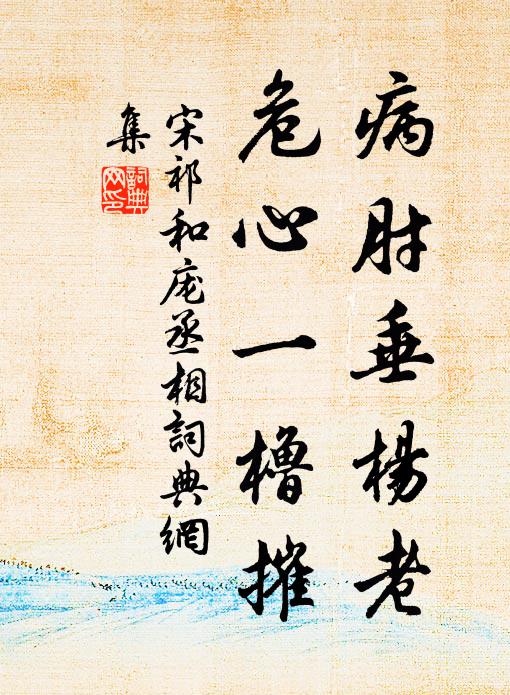 病肘垂楊老
危心一櫓摧
宋祁和庞丞相詞典網
集
詞典
网印